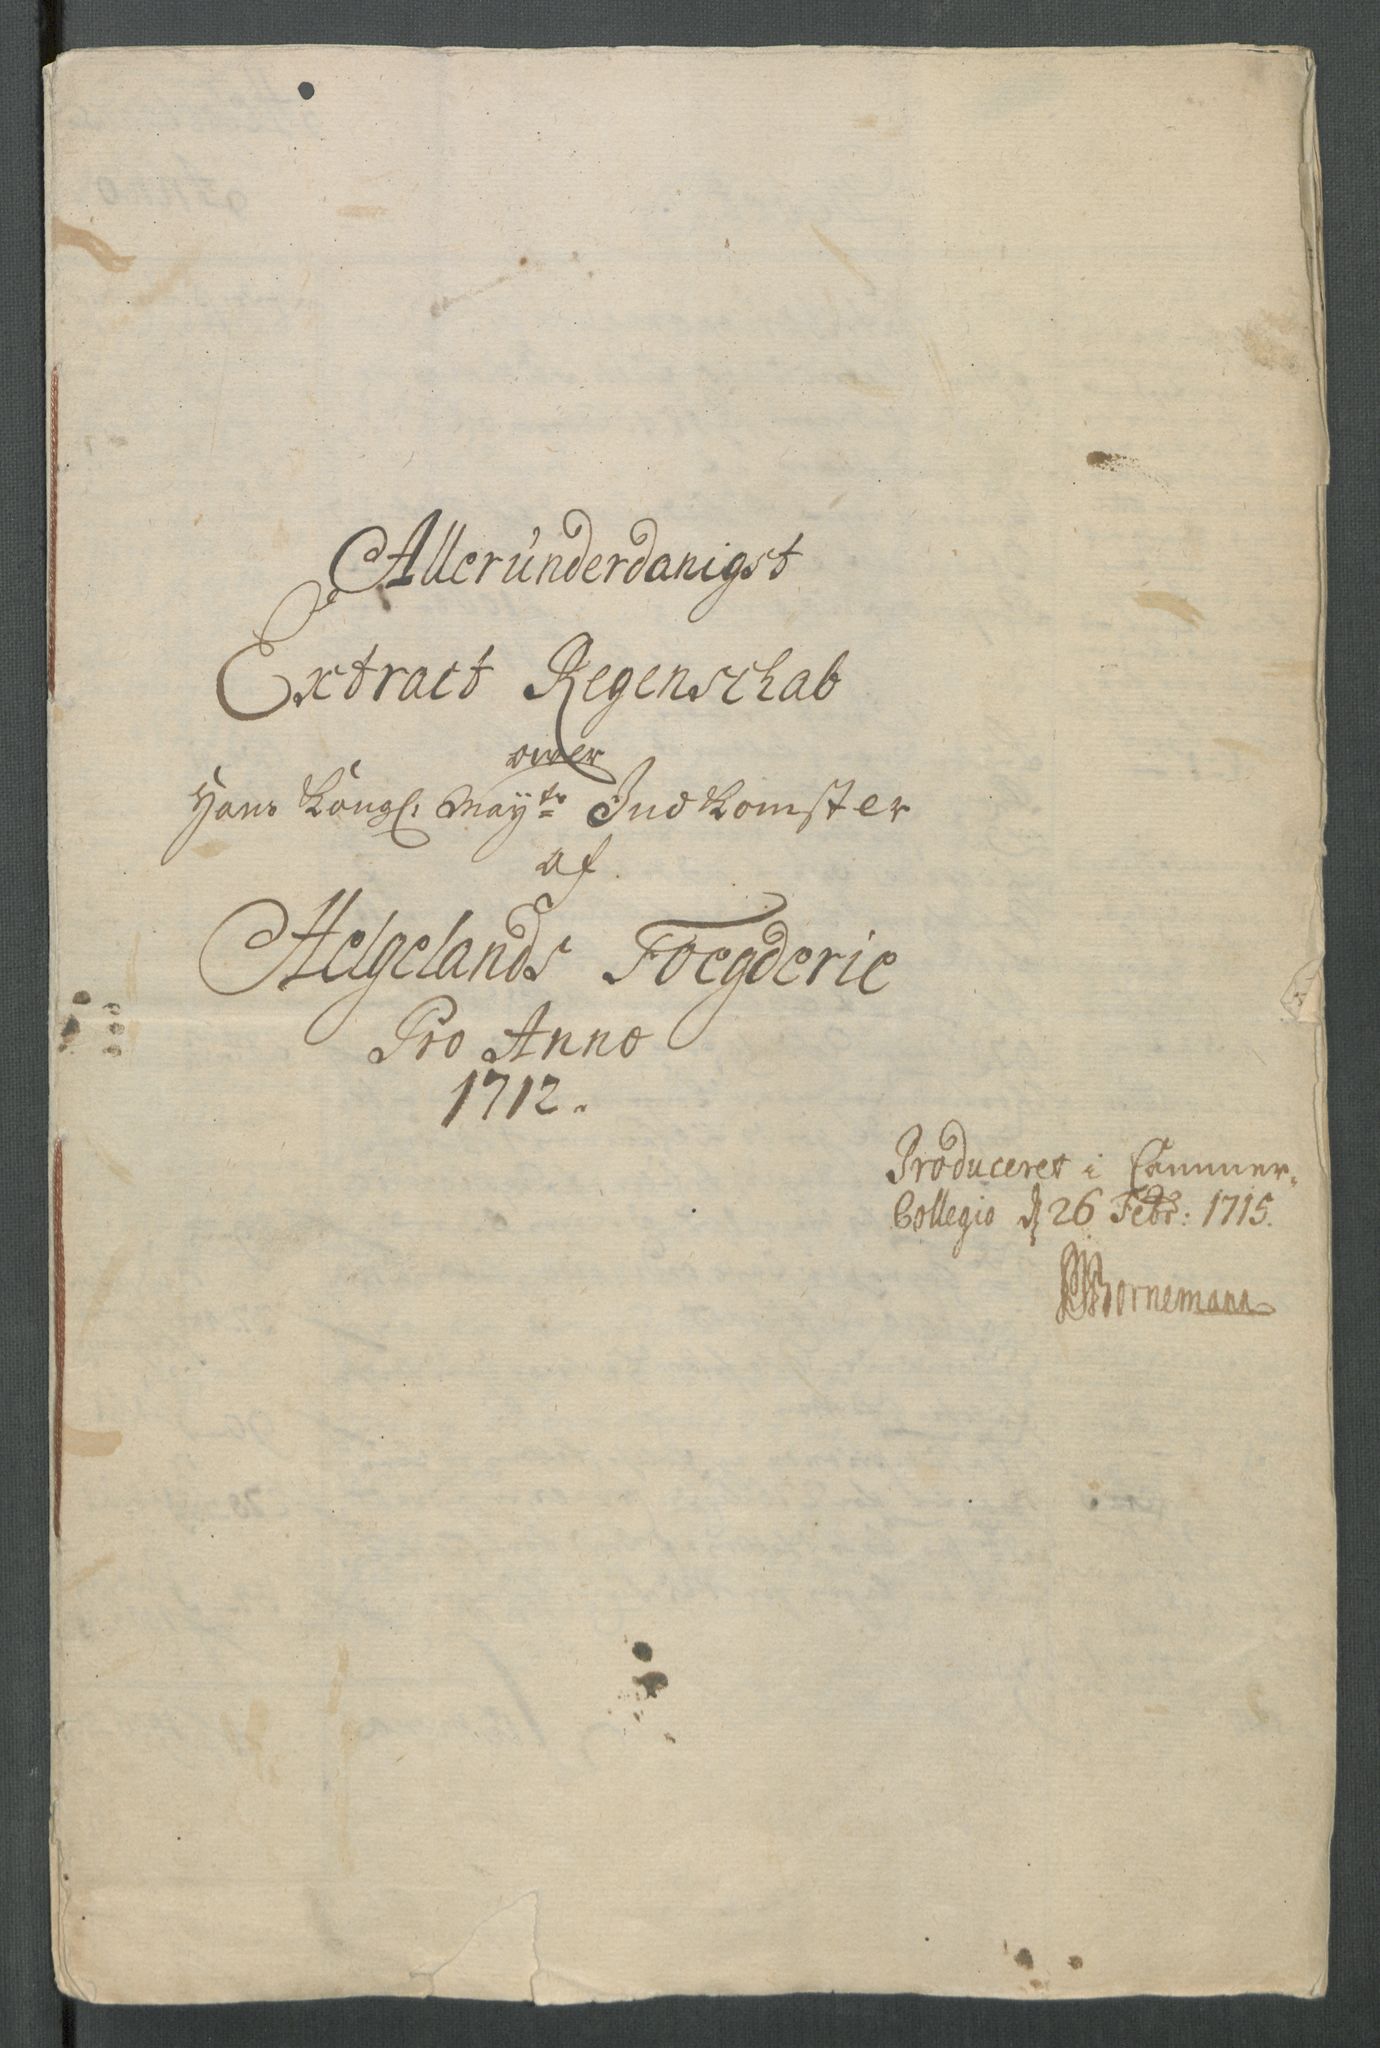 Allerúnderdanigst
Extract Regenschab
over
Hans Kongl: Mayts Indkomster
af
Helgelands Foegderie
Pro Anno
1712.
Produceret i Cammer-
Collegio d 26 Febr: 1715.
Bornemann